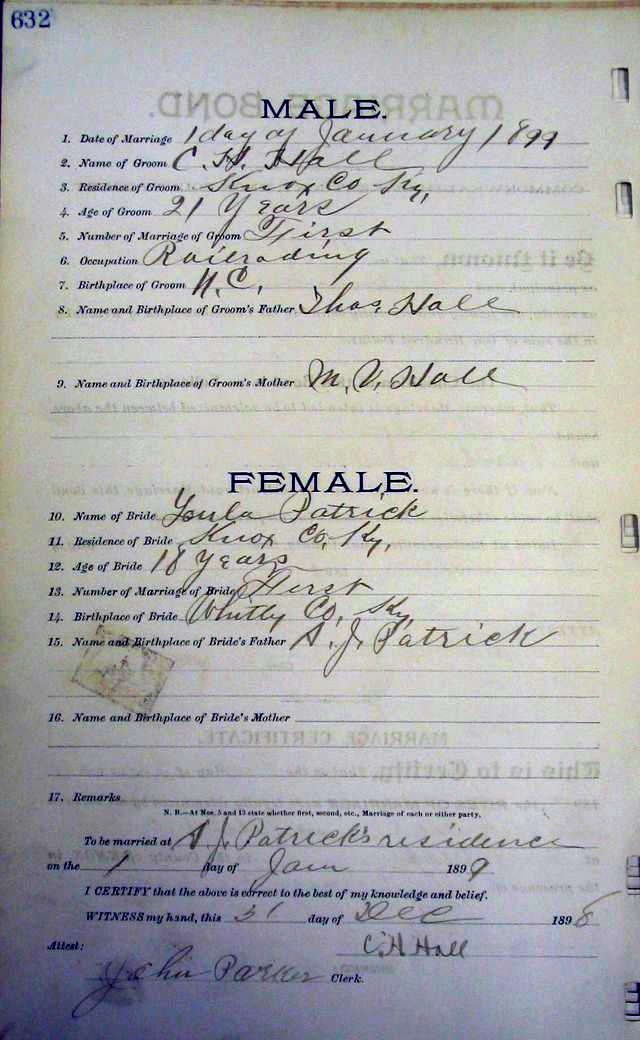 632
MALE.
1. Date of Marriage 1 day of January 1899
2. Name of Groom C. H. Hall
3. Residence of Groom Knox Co Ky,
4. Age of Groom 21 Years
5. Number of Marriage of Groom First
6. Occupation Railroading
7. Birthplace of Groom N.C.
8. Name and Birthplace of Groom's Father Thos Hall
9. Name and Birthplace of Groom's Mother M. V. Hall
FEMALE.
10. Name of Bride Patrick
11. Residence of Bride Knox Co, Ky,
12. Age of Bride 18 Years
13. Number of Marriage of Bride First
14. Birthplace of Bride Whitly Co, Ky
15. Name and Birthplace of Bride's Father A. J. Patrick
16. Name and Birthplace of Bride's Mother
17. Remarks
N. B.—At Nos. 5 and 13 state whether first, second, etc., Marriage of each or either party.
To be married at A. J. Patrick's residence
on the 1 day of Jan 1899
I CERTIFY that the above is correct to the best of my knowledge and belief.
WITNESS my hand, this 31 day of Dec 1898
C H Hall
Attest:
John Parker Clerk.